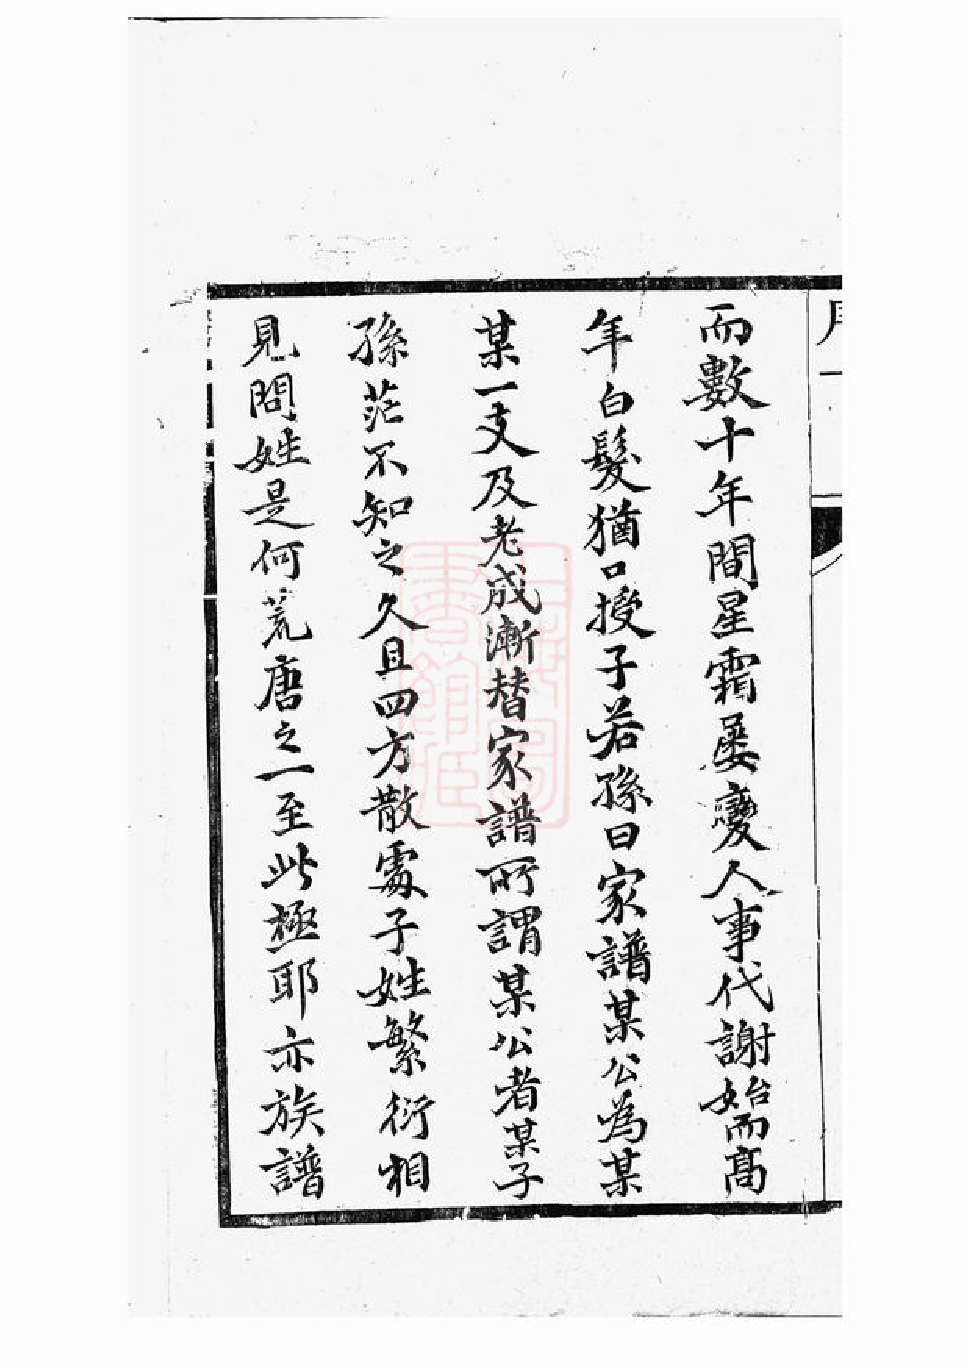 而數十年間星霜屡變人事代謝始而髙
年白髮猶口授子若孫曰家譜某公為某
某一支及老成漸替家譜所謂某公者某子
孫茫不知之久且四方散處子姓繁衍相
見問姓是何荒唐之一至此極耶亦族譜